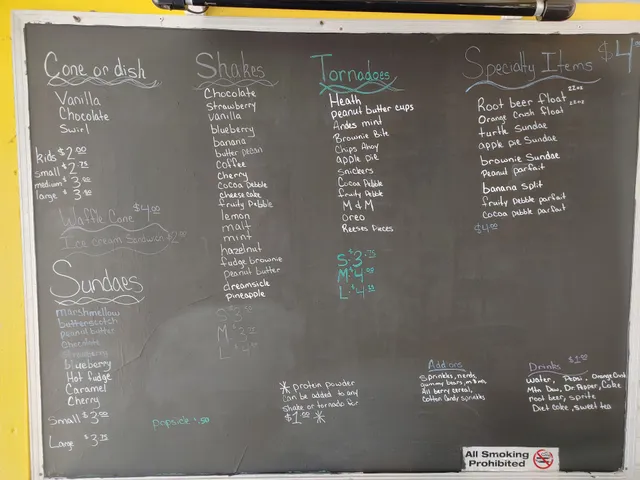 Cone or dish
Vanilla
Chocolate
Swirl
kids $2.00
small $2.75
medium $3.00
large $3.50
Waffle Cone $4.00
Ice cream Sandwich $2.00
Sundaes
marshmellow
butterscotch
peanut butter
chocolate
strawberry
blueberry
Hot fudge
Caramel
Cherry
Small $3.00
Large $3.75
Shakes
Chocolate
Strawberry
vanilla
blueberry
banana
butter pecan
coffee
cherry
cocoa Pebble
cheesecake
fruity Pebble
lemon
malt
mint
hazelnut
fudge brownie
peanut butter
dreamsicle
pineapple
S
M
L
popsicle .50
Tornadoes
Heath
peanut butter cups
Andes mint
Brownie Bite
Chips Ahoy
apple pie
snickers
Cocoa Pebble
fruity Pebble
M & M
oreo
Reeses pieces
S $3.75
M $4.00
L $4.50
* protein powder
can be added to any
shake or tornado for
$1.00 *
Specialty Items $4
Root beer float 22oz
Orange Crush float 22oz
turtle Sundae
apple pie Sundae
brownie Sundae
Peanut parfait
banana split
fruity pebble parfait
cocoa pebble parfait
$4.00
Add ons
Sprinkles, nerds,
gummy bears, m&ms,
All berry cereal,
Cotton Candy sprinkles
Drinks $1.00
water, Pepsi, Orange Crush
Mtn Dew, Dr. Pepper, Coke
root beer, sprite
Diet coke, sweet tea
All Smoking
Prohibited